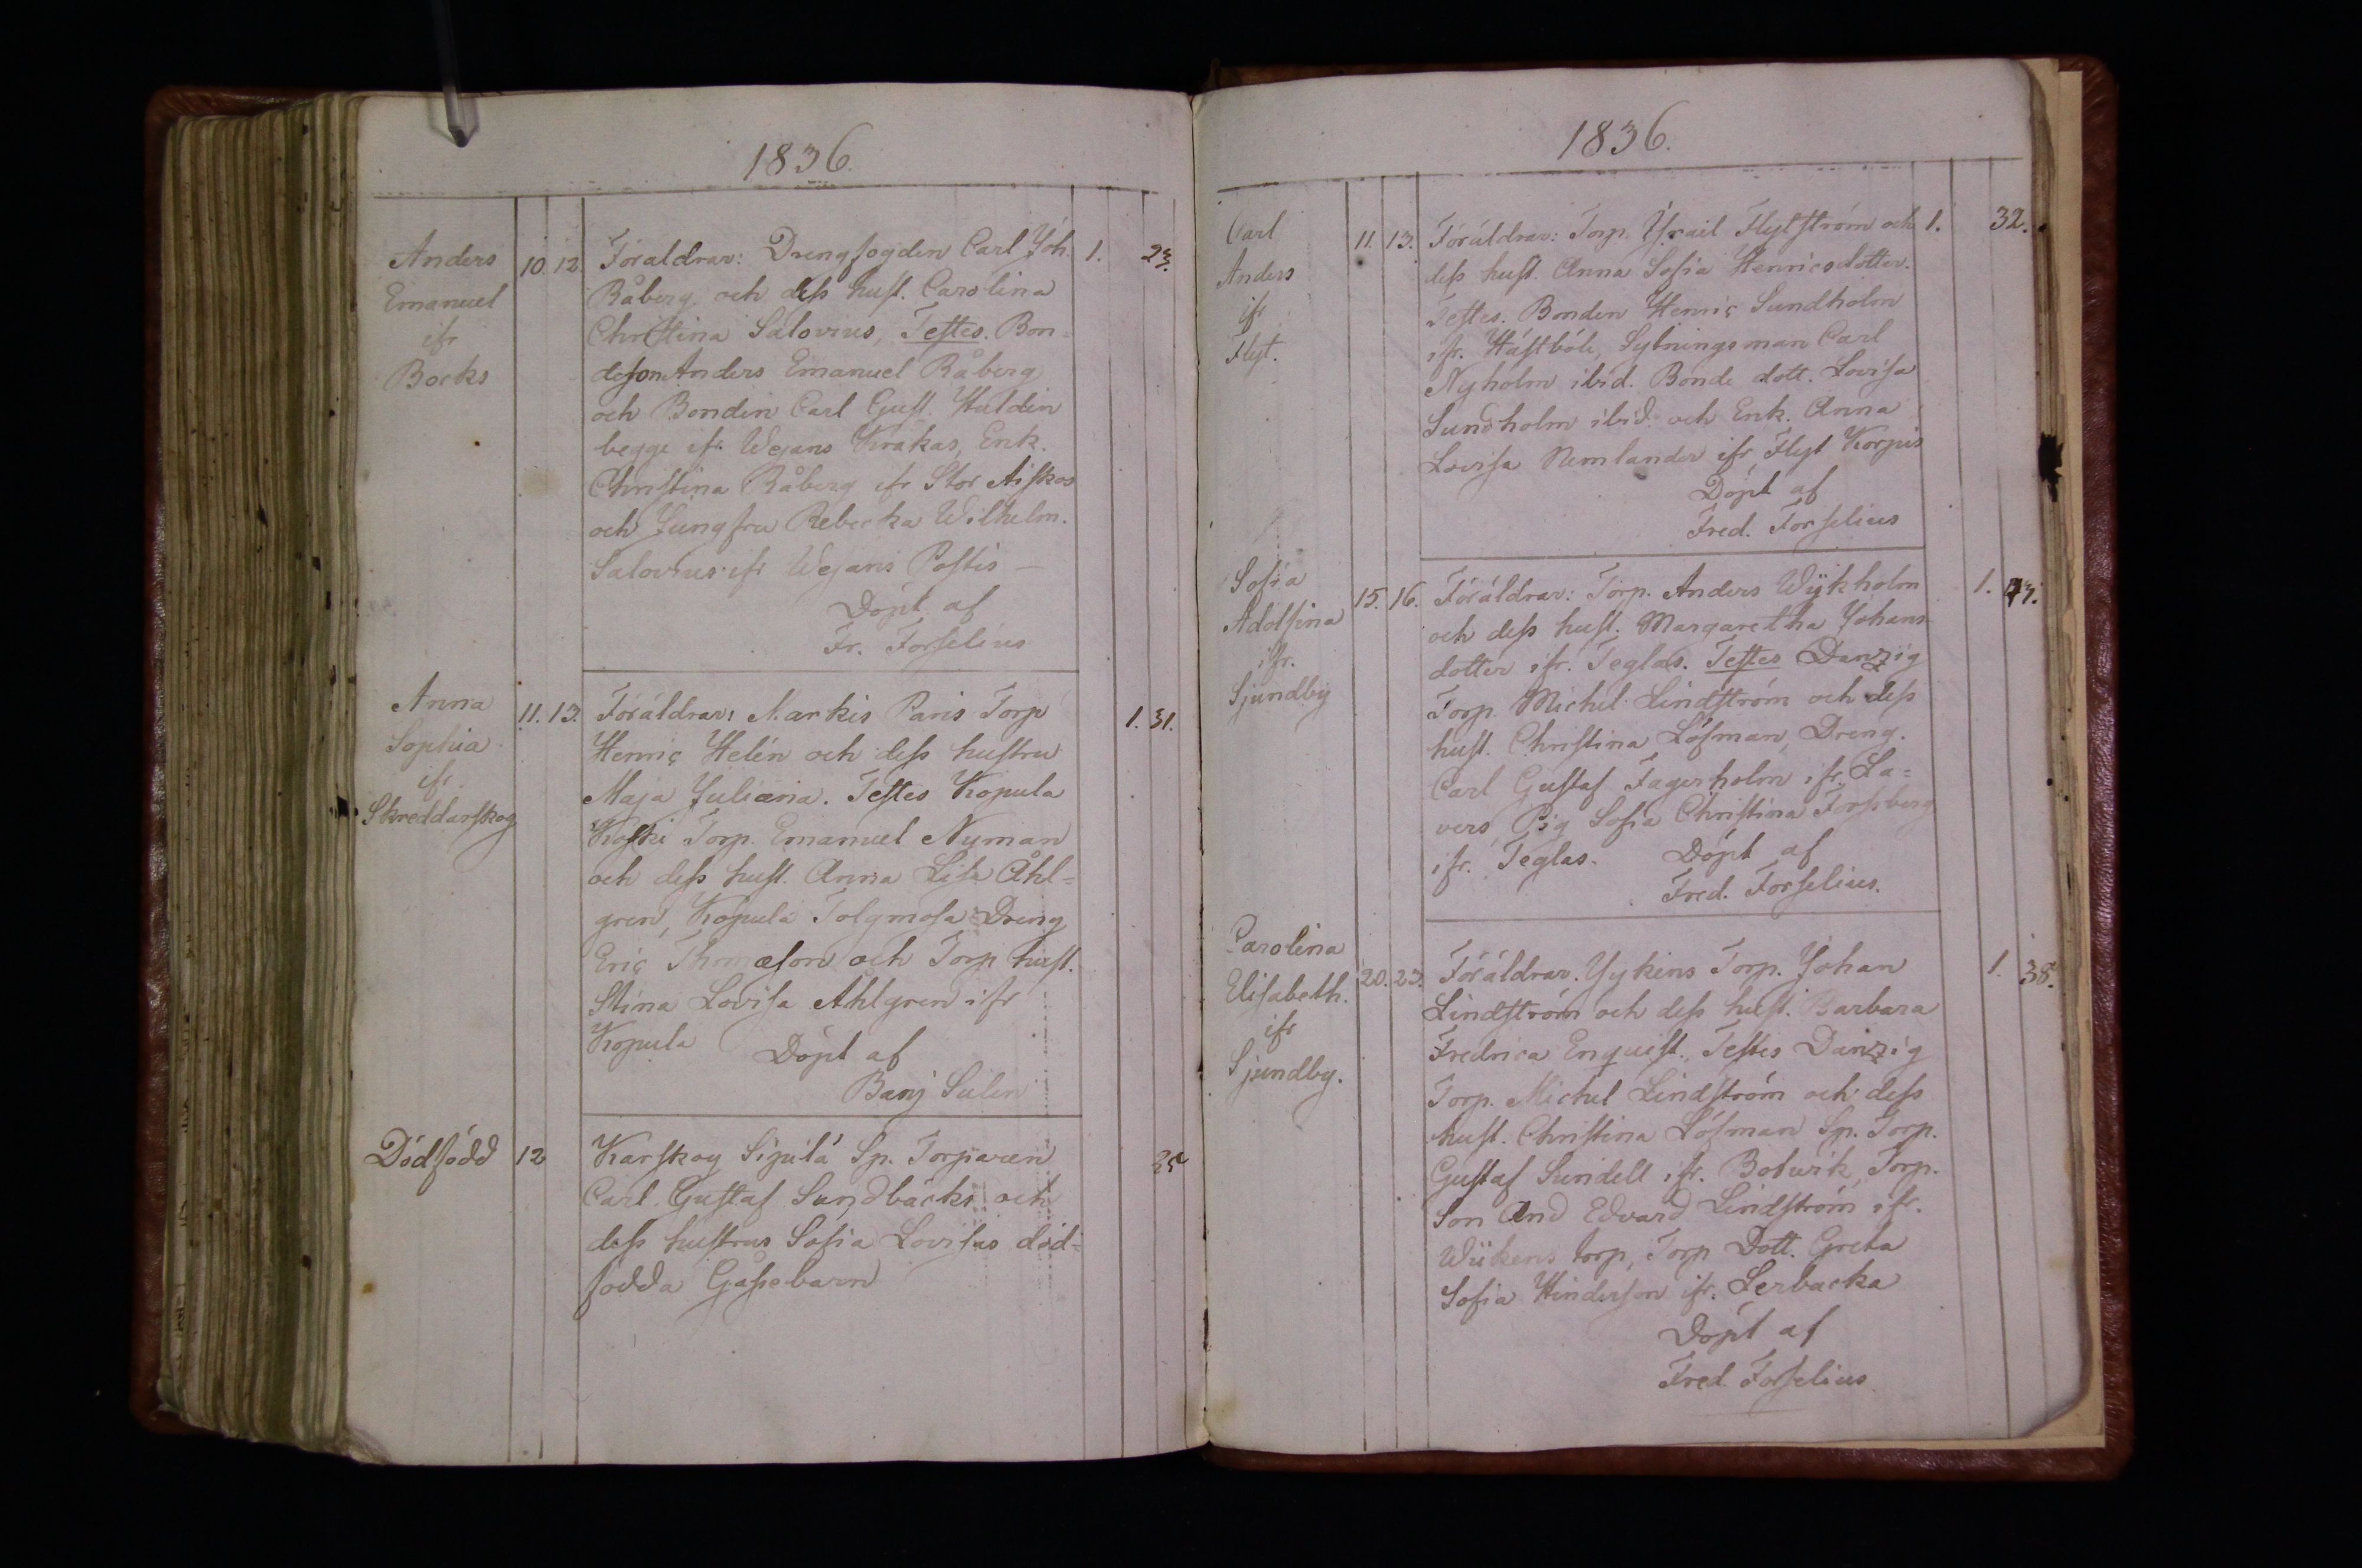 1836.
Anders
Emanuel
ifr
Bocks
10. 12.
Föräldrar: Drengfogden Carl Joh.
Råberg och dess hust. Carolina
Christina Salovius, Testes. Bon-
deson Anders Emanuel Råberg
och Bonden Carl Gust. Haldin
begge ifr. Wejans Kråkas, Enk.
Christina Råberg ifr Stor Aiskos
och Jungfru Rebecka Wilhelm.
Salovius ifr Wejans Postis —
Döpt af
Fr. Forselius
1. 23.
Anna
Sophia
ifr
Skreddarskog
11. 13.
Föräldrar: Markis Paris Torp
Henric Helén och dess hustru
Maja Juliana. Testes Kopula
Koski Torp. Emanuel Nyman
och dess hust. Anna Lisa Åhl-
gren, Kopula Tolgmosa Dreng
Eric Thomæson och Torp hust.
Stina Lovisa Ahlgren ifr
Kopula Döpt af
Banj Sulin
1. 31.
Dödfödd
12
Karskog Sigulá Sp. Torparen
Carl Gustaf Sundbäcks och
dess hustrus Sofia Lovisas död-
födda Gåssebarn
35
1836.
Carl
Anders
ifr
Flyt.
11. 13.
Föräldrar: Torp. Israil Flytström och
dess hust. Anna Sofia Henricsdotter.
Testes. Bonden Henric Sundholm
ifr. Hästböle, Sytningsman Carl
Nyholm ibid. Bonde dott. Lovisa
Sundholm ibid. och Enk. Anna
Lovisa Nemlander ifr Flyt Korpis
Döpt af
Fred. Forselius
1. 32.
Sofia
Adolfina
ifr.
Sjundby
15. 16.
Föräldrar: Torp. Anders Wijkholm
och dess hust. Margaretha Johans
dotter ifr. Teglas. Testes Danzig
Torp. Michel Lindström och dess
hust. Christina Löfman, Dreng.
Carl Gustaf Fagerholm ifr. La-
vers, Pig Sofia Christina Forssberg
ifr. Teglas. Döpt af
Fred. Forselius.
1.
Carolina
Elisabeth.
ifr
Sjundby.
20. 23.
Föräldrar. Yykens Torp. Johan
Lindström och dess hust. Barbara
Fredrica Enquist. Testes Danzig
Torp. Michel Lindström och dess
hust. Christina Löfman Sp. Torp.
Gustaf Sundell ifr. Botwik, Torp.
Son And Edvard Lindström ifr.
Wiikens torp, Torp Dott. Greta
Sofia Hinderson ifr. Lerbacka
Döpt af
Fred. Forselius
1. 38.